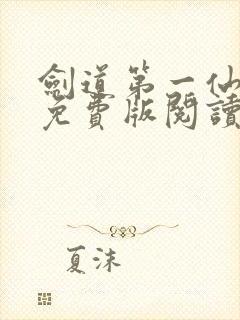 劍道第一仙
免費版閱讀
夏沫